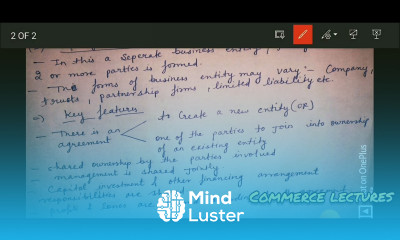 2 OF 2
- In this a Seperate business entity
2 or more parties is formed.
- The forms of business entity may vary - Company,
trusts, partnership firms, limited liability etc.
Key features
- There is an agreement
to create a new entity (or)
one of the parties to join into ownership
of an existing entity
- shared ownership by the parties involved
- management is shared jointly
- Capital investment & other financing arrangement
responsibilities are
profit & losses are
Mind
Luster
COMMERCE LECTURES
on OnePlus